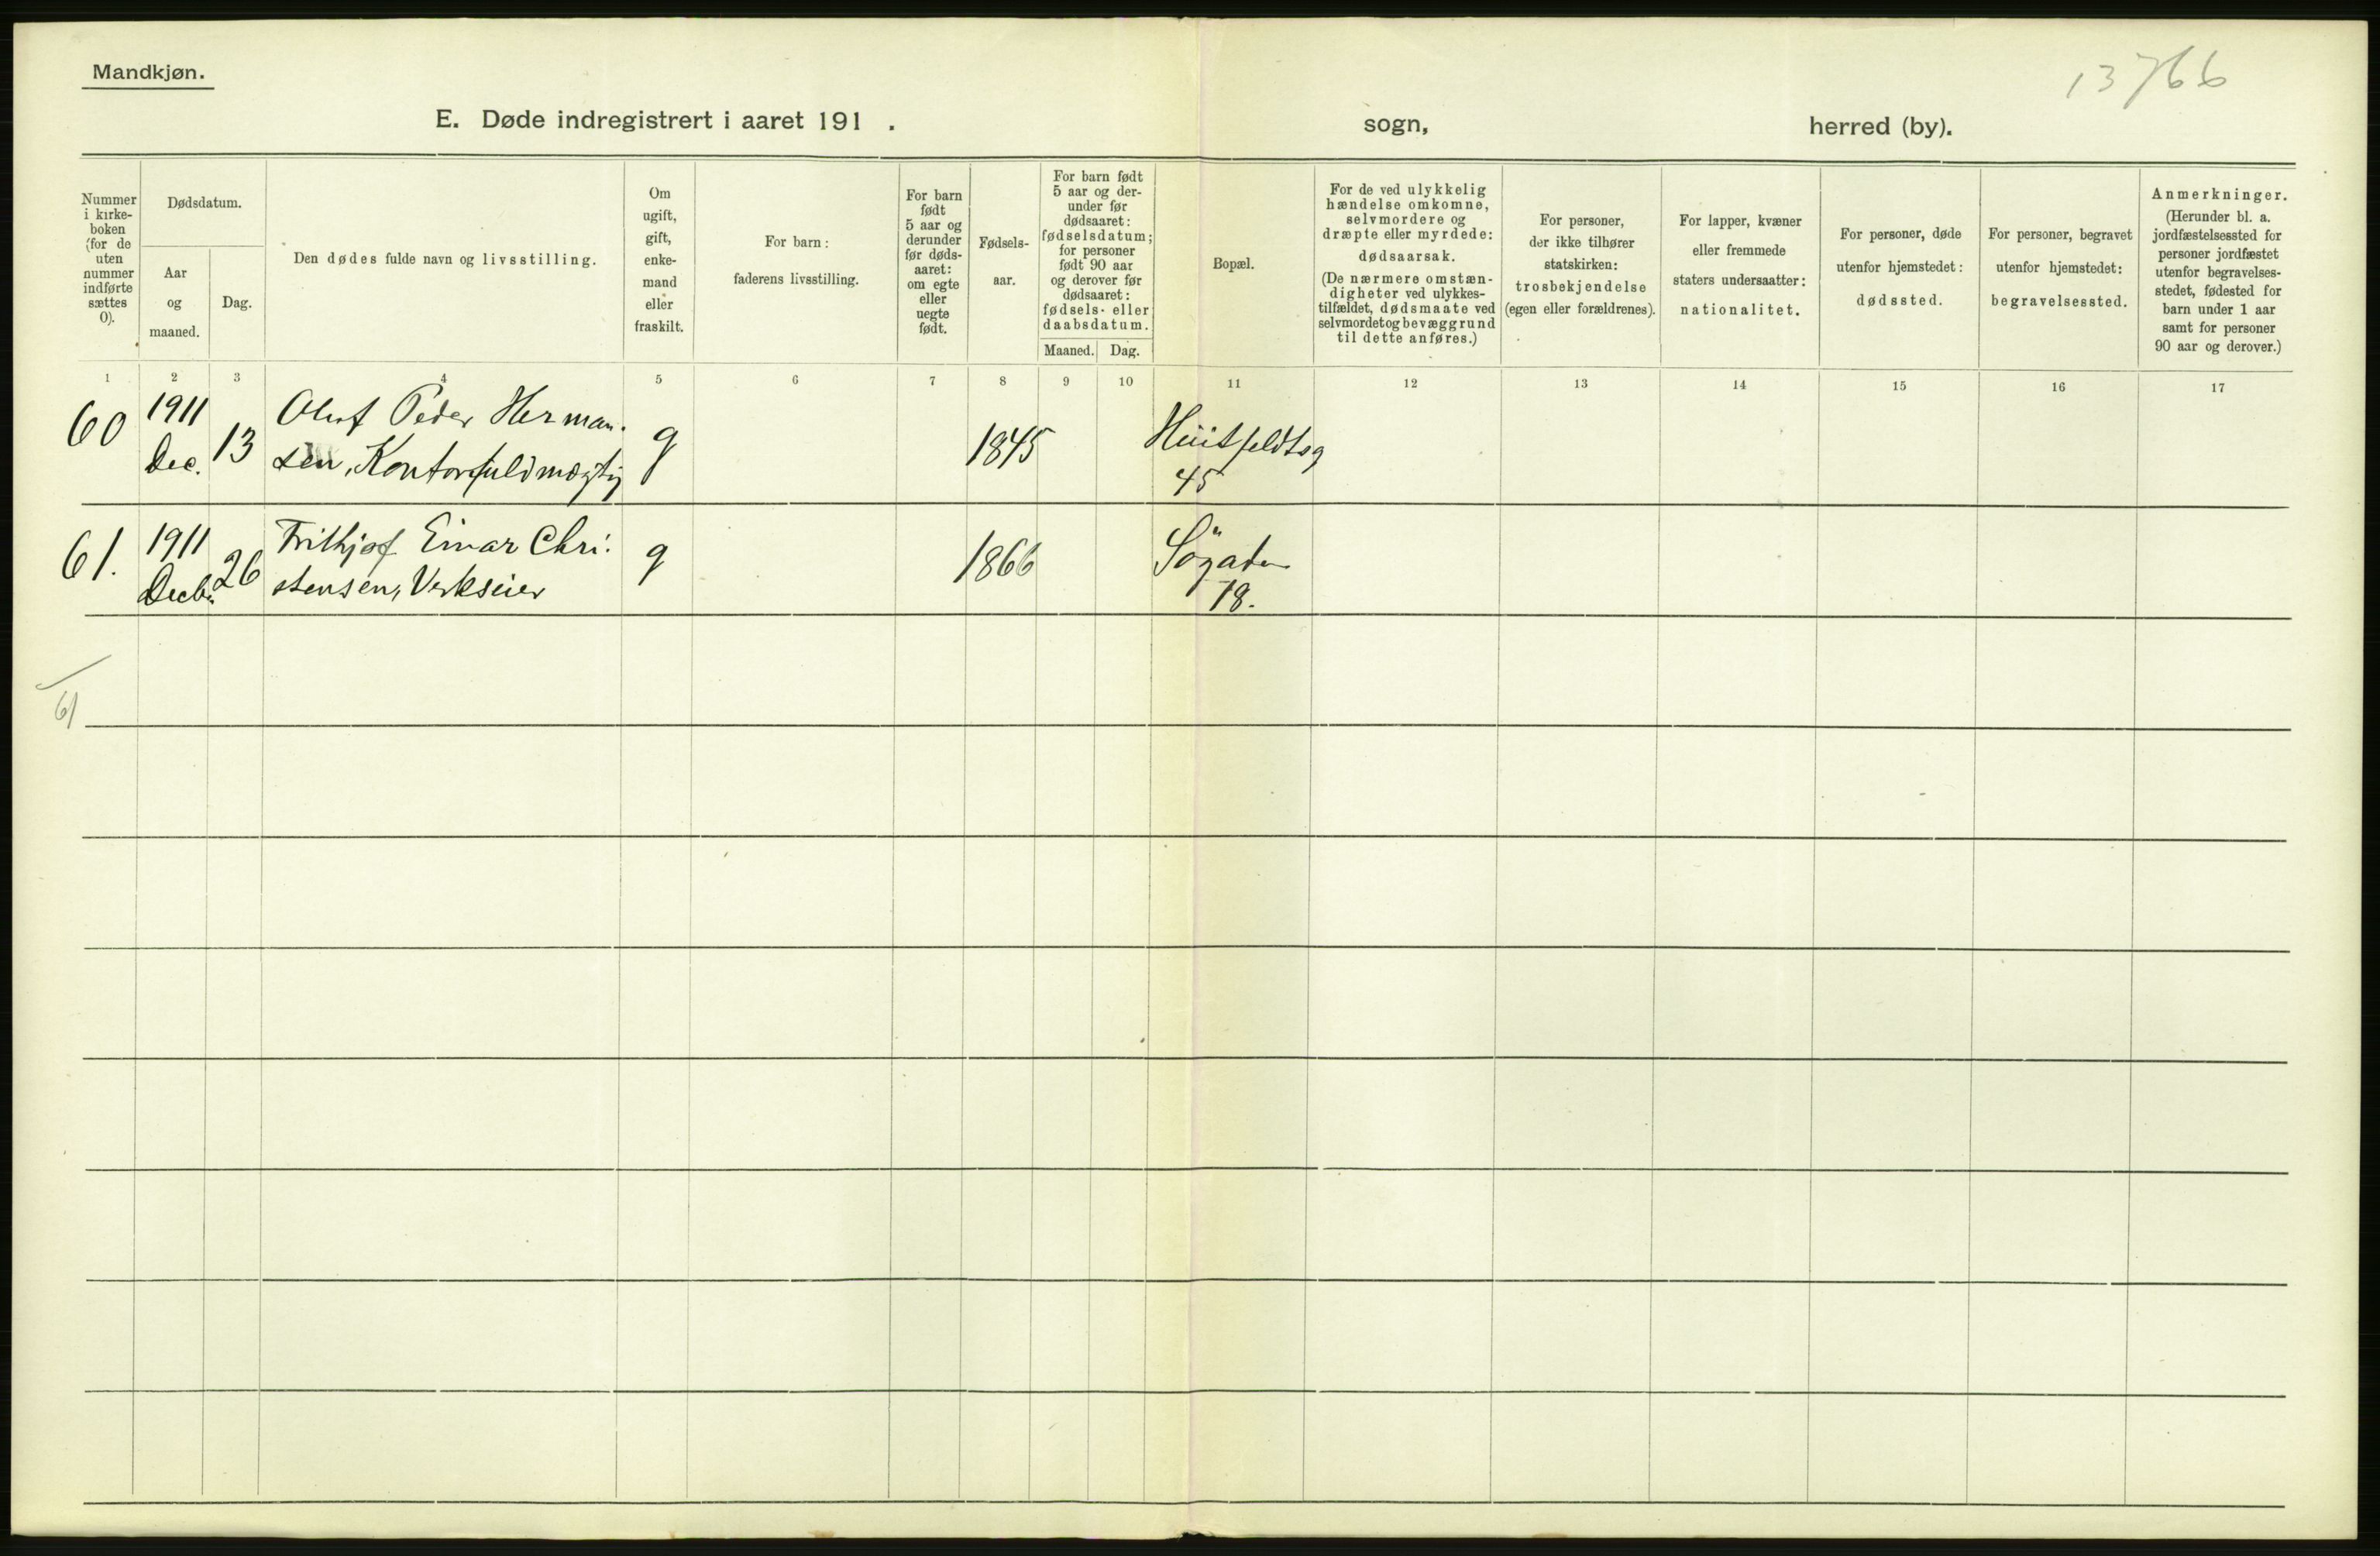 Mandkjøn.
13766
E. Døde indregistrert i aaret 191 . sogn, herred (by).
Nummer
i kirke-
boken
(for de
uten
nummer
indførte
sættes
0).
Dødsdatum.
Aar
og
maaned.
Dag.
Den dødes fulde navn og livsstilling.
Om
ugift,
gift,
enke-
mand
eller
fraskilt.
For barn:
faderens livsstilling.
For barn
født
5 aar og
derunder
før døds-
aaret:
om egte
eller
uegte
født.
Fødsels-
aar.
For barn født
5 aar og der-
under før
dødsaaret:
fødselsdatum;
for personer
født 90 aar
og derover før
dødsaaret:
fødsels- eller
daabsdatum.
Maaned. Dag.
Bopæl.
For de ved ulykkelig
hændelse omkomne,
selvmordere og
dræpte eller myrdede:
dødsaarsak.
(De nærmere omstæn-
digheter ved ulykkes-
tilfældet, dødsmaate ved
selvmordet og bevæggrund
til dette anføres.)
For personer,
der ikke tilhører
statskirken:
trosbekjendelse
(egen eller forældrenes).
For lapper, kvæner
eller fremmede
staters undersaatter:
nationalitet.
For personer, døde
utenfor hjemstedet:
dødssted.
For personer, begravet
utenfor hjemstedet:
begravelsessted.
Anmerkninger.
(Herunder bl. a.
jordfæstelsessted for
personer jordfæstet
utenfor begravelses-
stedet, fødested for
barn under 1 aar
samt for personer
90 aar og derover.)
1 2 3 4 5 6 7 8 9 10 11 12 13 14 15 16 17
60 1911
Dec. 13
Oluf Peder Herman-
sen, Kontorfuldmægtig
g 1845
Huitfeldtsg
45
61. 1911
Decbr. 26
Frithjof Einar Chri-
stensen, Verkseier
g 1866
Søgaden
18.
61